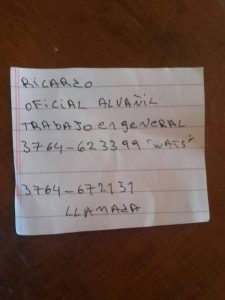 RICARDO
OFICIAL ALVAÑIL
TRABAJO EN GENERAL
3764-623399 "WATS"
3764-672131
LLAMADA